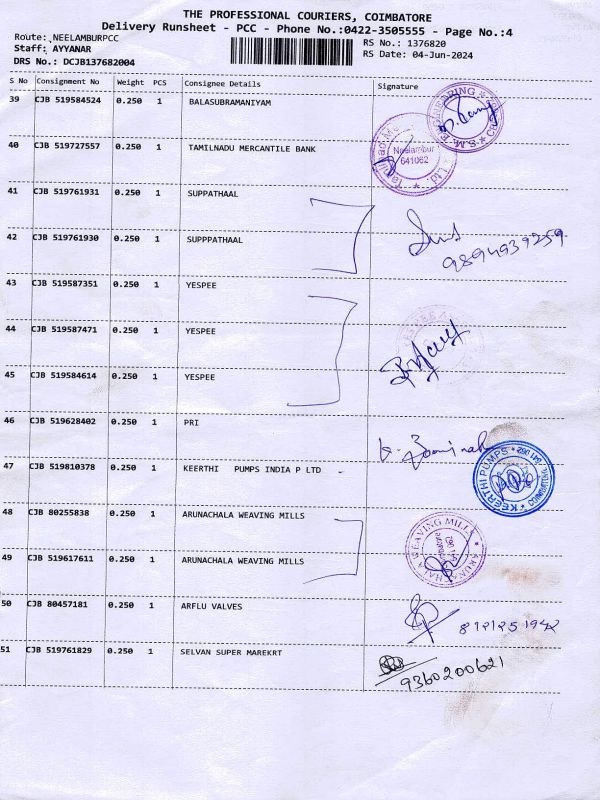 THE PROFESSIONAL COURIERS, COIMBATORE
Delivery Runsheet - PCC - Phone No.:0422-3505555 - Page No.:4
Route: NEELAMBURPCC
RS No.: 1376820
Staff: AYYANAR
RS Date: 04-Jun-2024
DRS No.: DCJB137682004
S No Consignment No Weight PCS Consignee Details Signature
39 CJB 519584524 0.250 1 BALASUBRAMANIYAM
40 CJB 519727557 0.250 1 TAMILNADU MERCANTILE BANK
Neelambur
641062
41 CJB 519761931 0.250 1 SUPPATHAAL
42 CJB 519761930 0.250 1 SUPPPATHAAL
9894939259
43 CJB 519587351 0.250 1 YESPEE
44 CJB 519587471 0.250 1 YESPEE
45 CJB 519584614 0.250 1 YESPEE
46 CJB 519628402 0.250 1 PRI
47 CJB 519810378 0.250 1 KEERTHI PUMPS INDIA P LTD -
KEERTHI PUMPS
48 CJB 80255838 0.250 1 ARUNACHALA WEAVING MILLS
WEAVING MILLS
49 CJB 519617611 0.250 1 ARUNACHALA WEAVING MILLS
50 CJB 80457181 0.250 1 ARFLU VALVES
51 CJB 519761829 0.250 1 SELVAN SUPER MAREKRT
9360200621